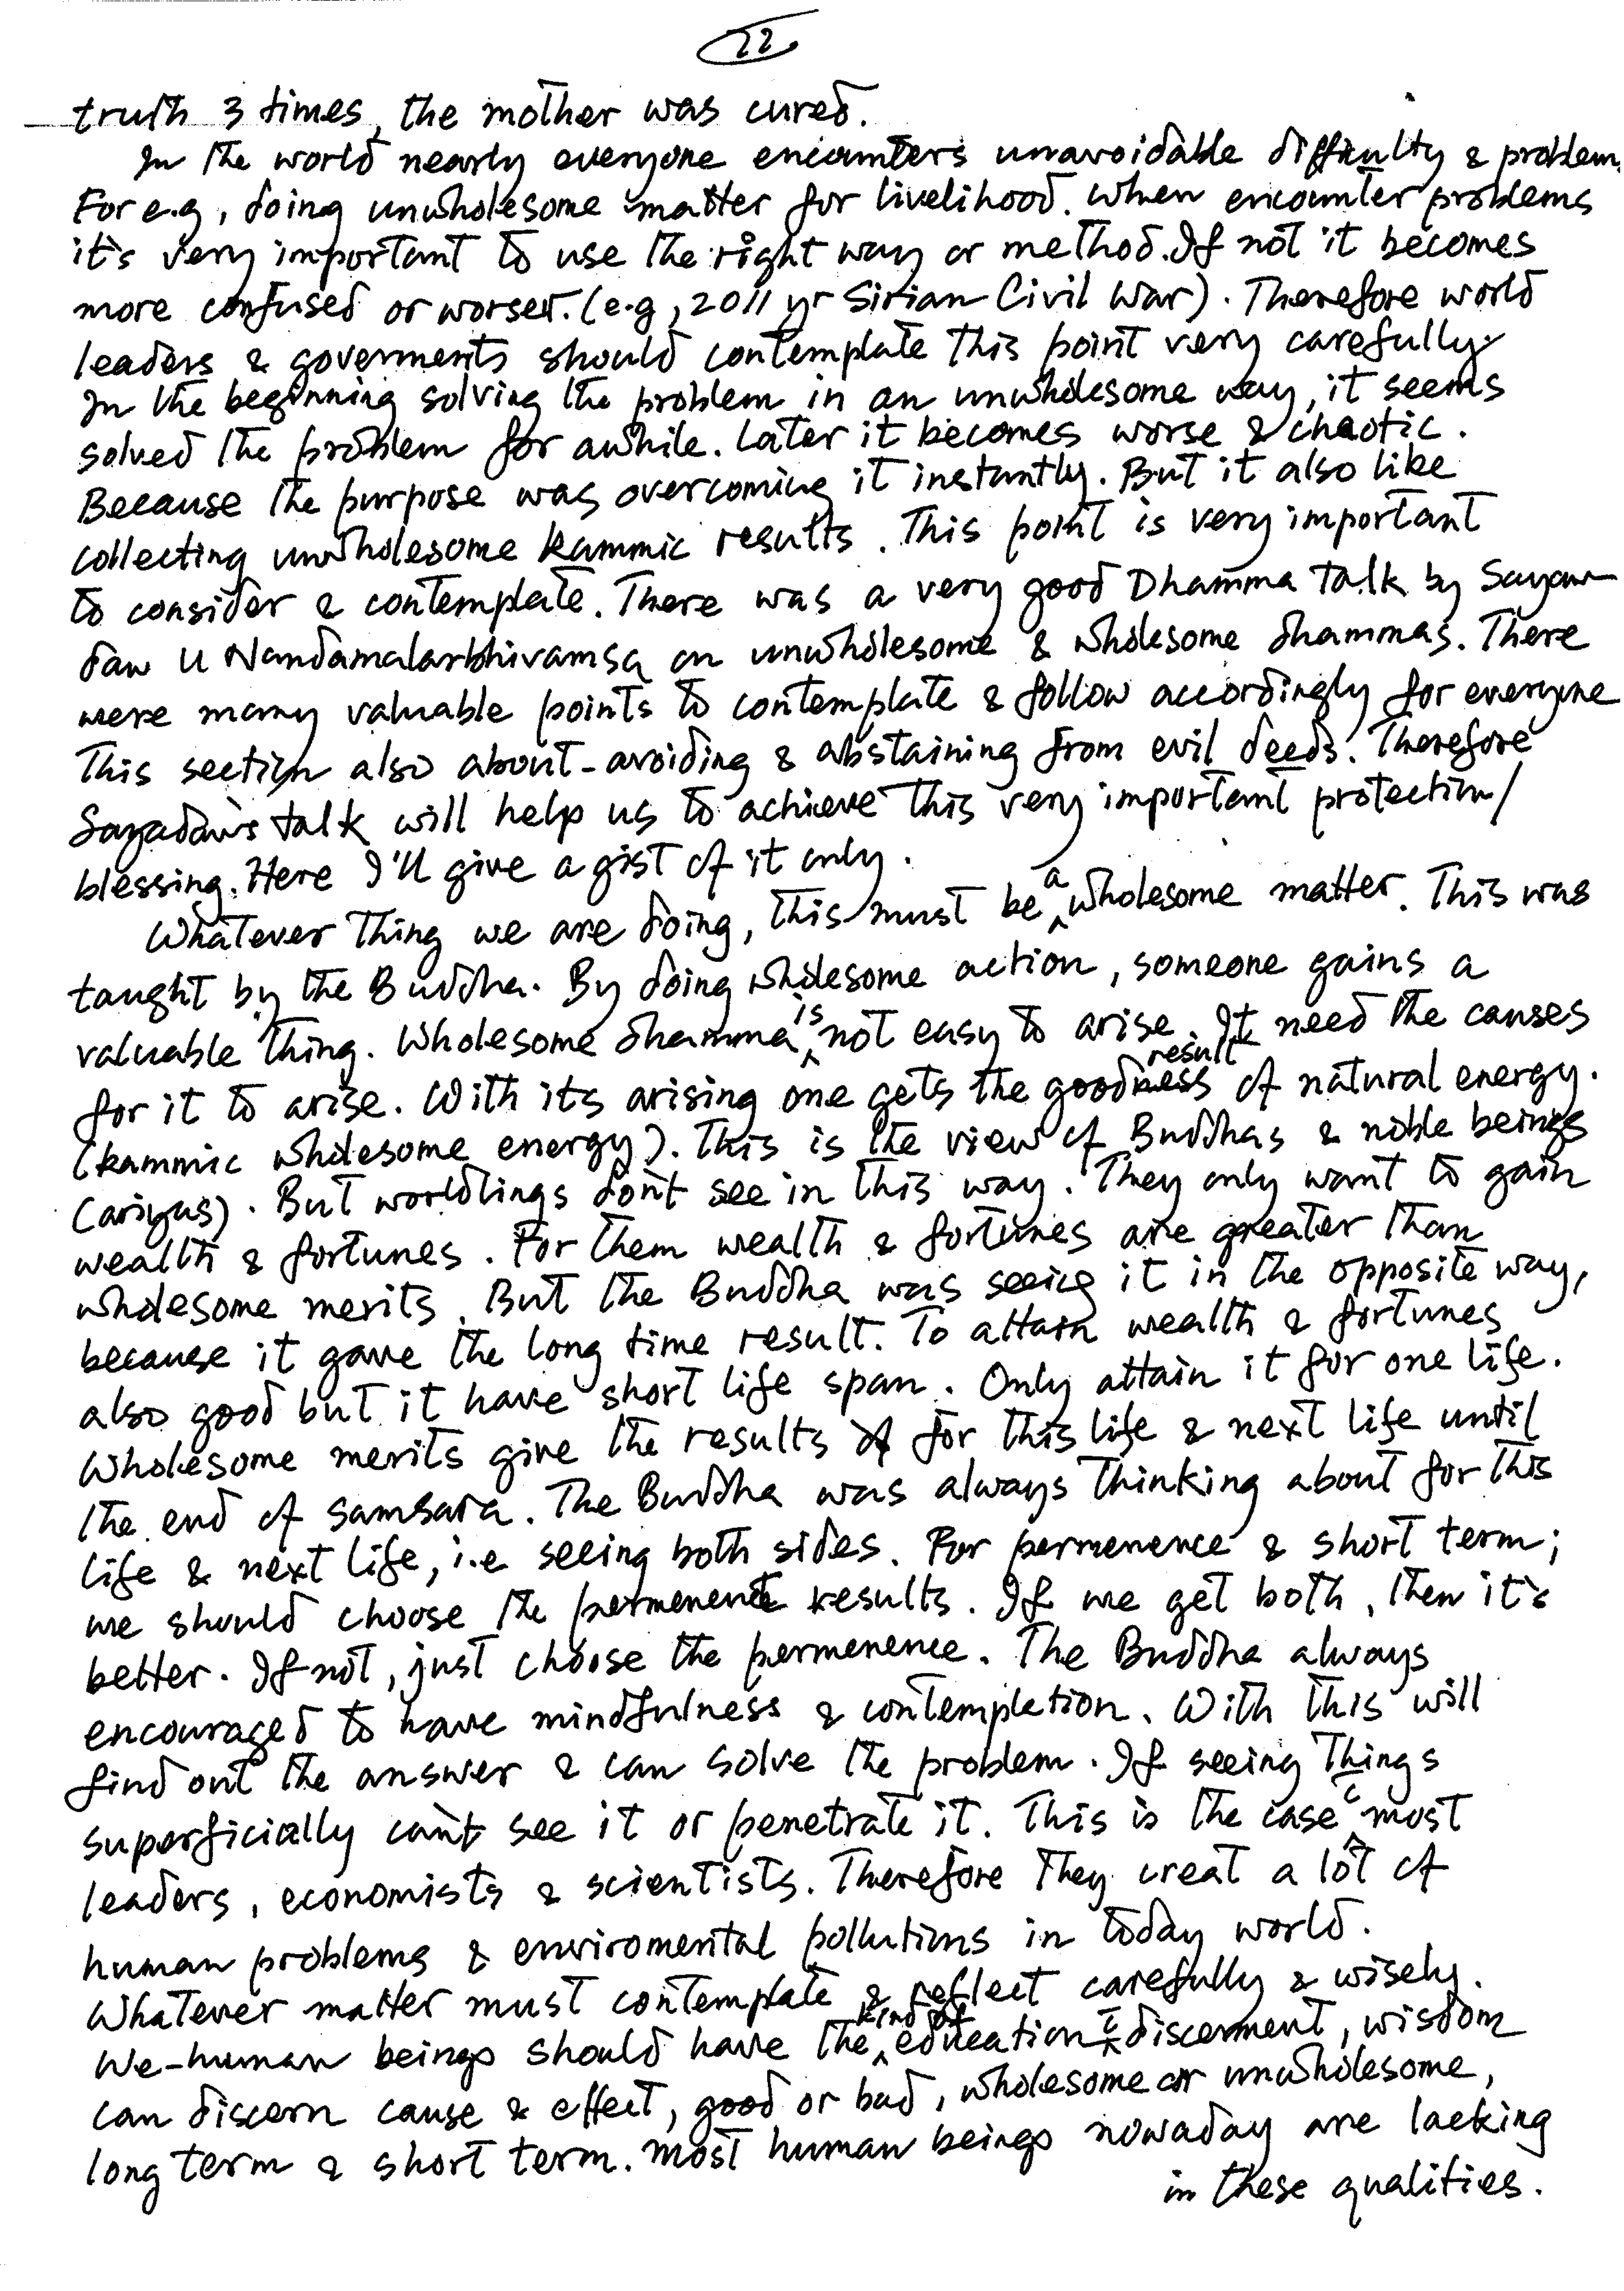 22
truth 3 times, the mother was cured.
In the world nearly everyone encounters unavoidable difficulty & problem.
For e.g, doing unwholesome matter for livelihood. When encounter problems
it's very important to use the right way or method. If not it becomes
more confused or worser. (e.g, 2011 yr Sirian Civil War). Therefore world
leaders & goverments should contemplate this point very carefully.
In the beginning solving the problem in an unwholesome way, it seems
solved the problem for awhile. Later it becomes worse & chaotic.
Because the purpose was overcoming it instantly. But it also like
collecting unwholesome kammic results. This point is very important
to consider & contemplate. There was a very good Dhamma talk by Sayaw-
daw U Nandamalarbhivamsa on unwholesome & wholesome dhammas. There
were many valuable points to contemplate & follow accordingly for everyone
This section also about-avoiding & abstaining from evil deeds. Therefore
Sayadaw's talk will help us to achieve this very important protection/
blessing. Here I'll give a gist of it only.
Whatever thing we are doing, this must be a wholesome matter. This was
taught by the Buddha. By doing wholesome action, someone gains a
valuable thing. Wholesome dhamma is not easy to arise. It need the causes
for it to arise. With its arising one gets the good result of natural energy.
(kammic wholesome energy). This is the view of Buddhas & noble beings
(ariyas). But worldlings don't see in this way. They only want to gain
wealth & fortunes. For them wealth & fortunes are greater than
wholesome merits. But the Buddha was seeing it in the opposite way,
because it gave the long time result. To attain wealth & fortunes
also good but it have short life span. Only attain it for one life.
Wholesome merits give the results for this life & next life until
the end of samsara. The Buddha was always thinking about for this
life & next life, i.e seeing both sides. For permenence & short term;
we should choose the permenent results. If we get both, then it's
better. If not, just choose the permenence. The Buddha always
encouraged to have mindfulness & contempletion. With this will
find out the answer & can solve the problem. If seeing things
superficially can't see it or penetrate it. This is the case c̄ most
leaders, economists & scientists. Therefore they creat a lot of
human problems & enviromental pollutions in today world.
Whatever matter must contemplate & reflect carefully & wisely.
We-human beings should have the kind of education c̄ discernment, wisdom
can discern cause & effect, good or bad, wholesome or unwholesome,
long term & short term. Most human beings nowaday are lacking
in these qualities.